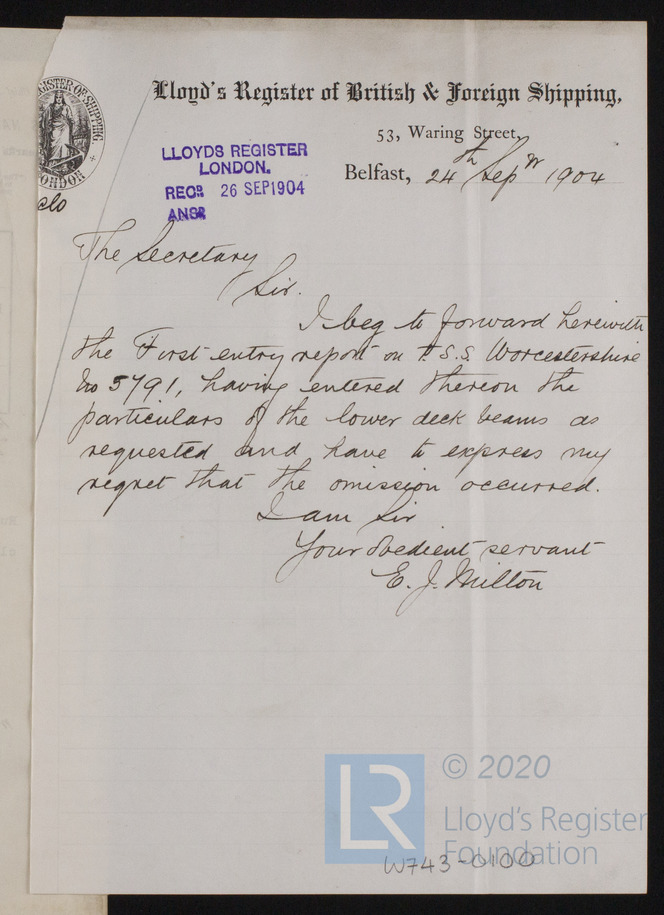 Lloyd's Register of British & Foreign Shipping,
53, Waring Street,
Belfast, 24th Sepr 1904
GISTER OF SHIPPING
LONDON
LLOYDS REGISTER
LONDON.
RECD. 26 SEP 1904
ANSD
The Secretary
Sir.
I beg to forward herewith
the First entry report on T.S.S. Worcestershire
No 5791, having entered thereon the
particulars of the lower deck beams as
requested and have to express my
regret that the omission occurred.
I am Sir
Your obedient servant
E. J. Milton
© 2020
LR
Lloyd's Register
Foundation
W743-0100